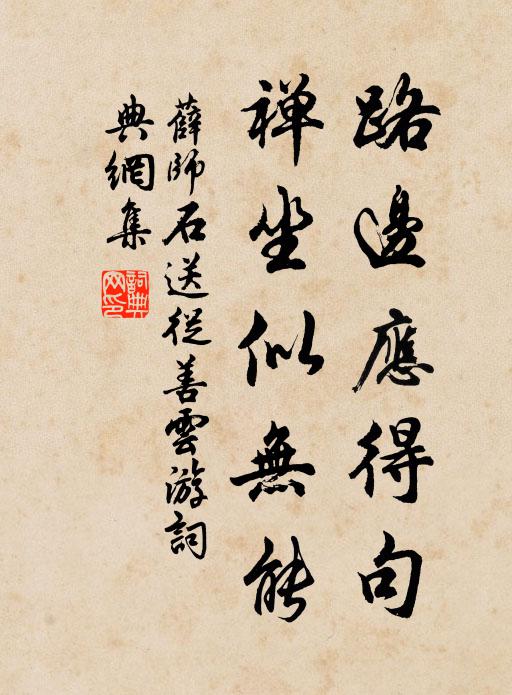 路邊應得句
禪坐似無能
薛師石送從善雲游詞
典網集
詞典网印